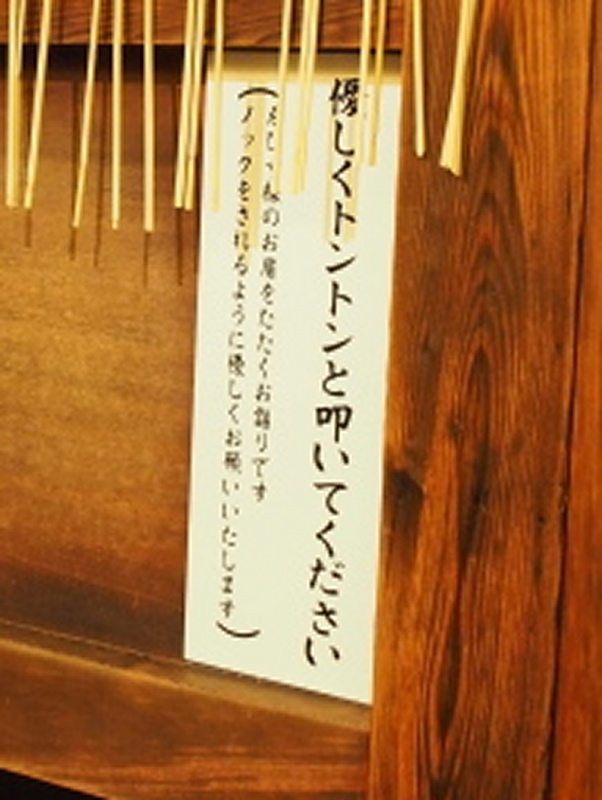 優しくトントンと叩いてください
(様のお扉をたたくお詣りです
ノックをされるように優しくお願いいたします)